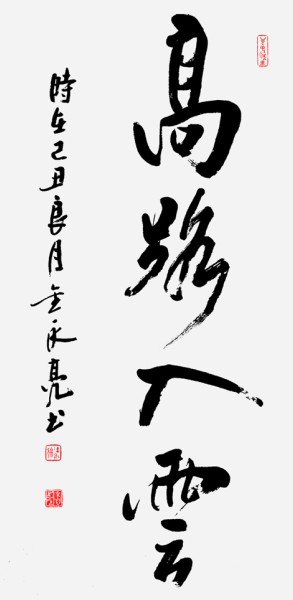 高路入雲
時在己丑良月金永亮书